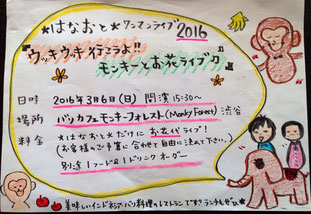 *はなおと* ワンマンライブ2016
『ウッキウキ行こうよ!!
モンキーとお花ライブ♪』
日時 2016年3月6日(日) 開演15:30~
場所 バリカフェモンキーフォレスト(Monkey Forest) 渋谷
料金 *はなおと*だけにお花代ライブ!
(お客様のご予算に合わせて自由に決めて下さい。)
別途1フード&1ドリンクオーダー
美味しいインドネシア・バリ料理のレストランです♡ランチもぜひ